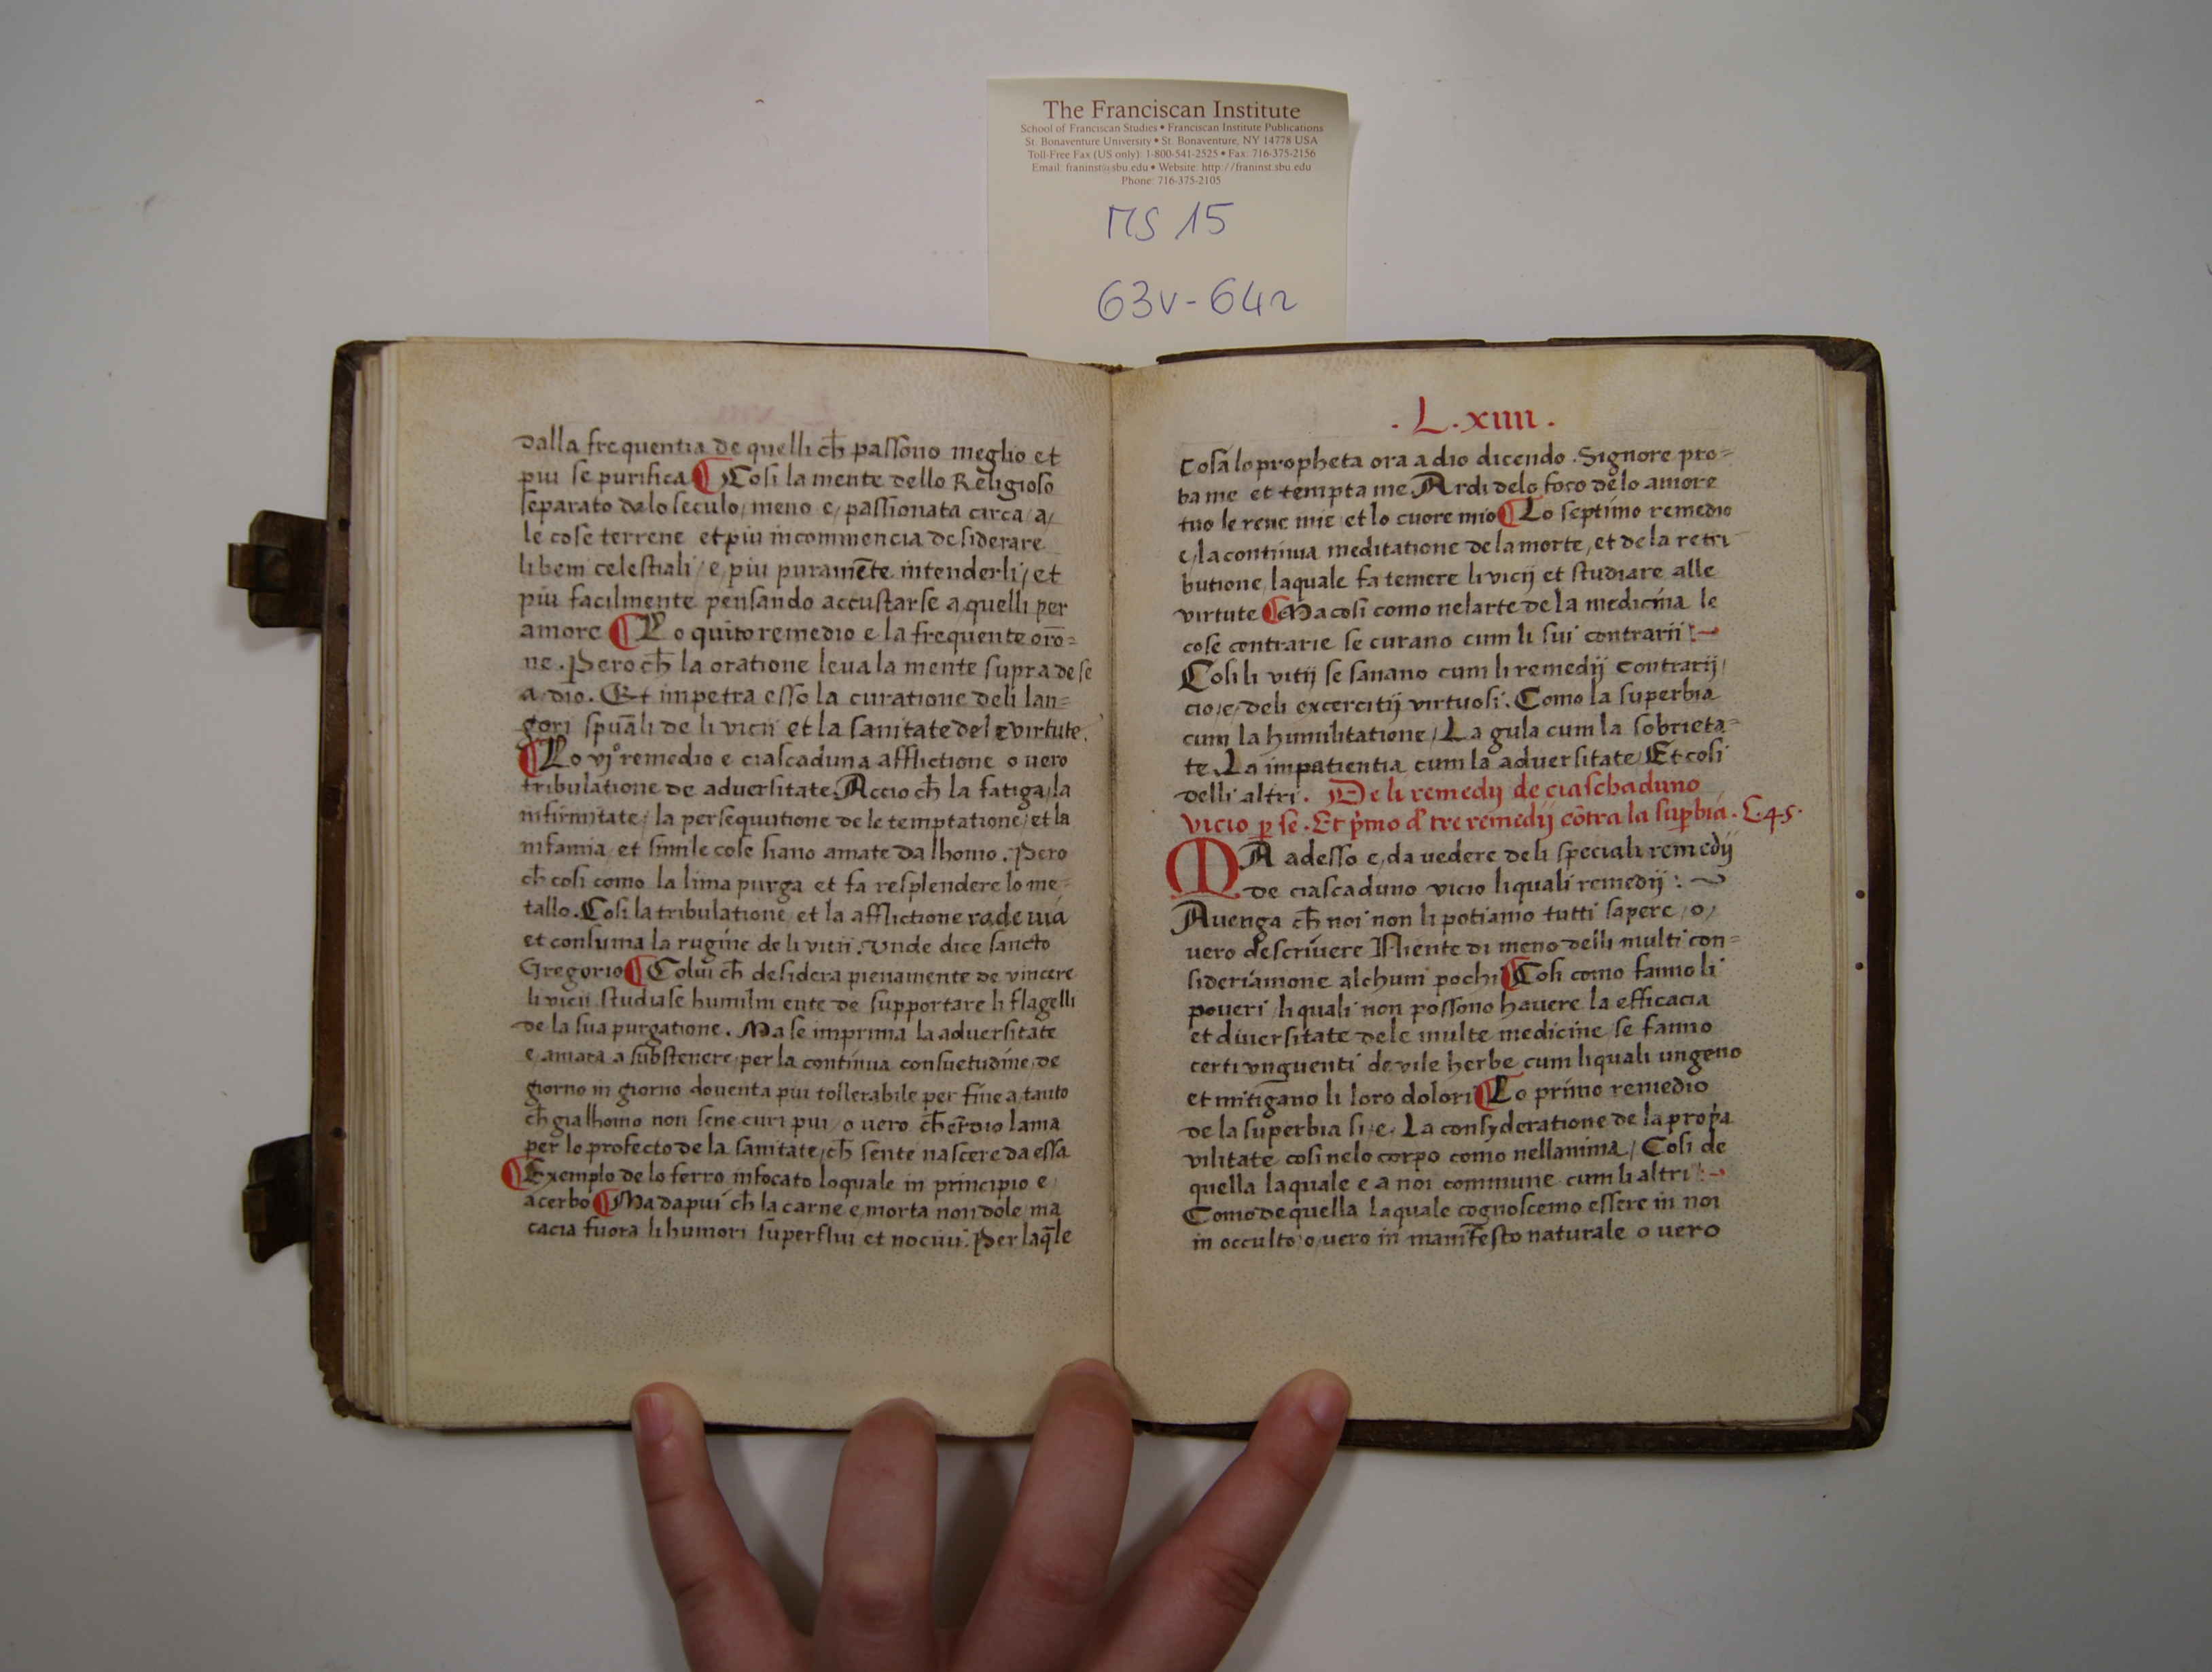 The Franciscan Institute
School of Franciscan Studies • Franciscan Institute Publications
St. Bonaventure University • St. Bonaventure, NY 14778 USA
Toll-Free Fax (US only): 1-800-541-2525 • Fax: 716-375-2156
Email: franinst@sbu.edu • Website: http://franinst.sbu.edu
Phone: 716-375-2105
MS 15
63v-64r
dalla frequentia de quelli ch̄ passono meglio et
piu se purifica ¶ Cosi la mente dello Religioso
separato dalo seculo / meno e / passionata circa a /
le cose terrene et piu incommencia desiderare
li beni celestiali / e piu puramēte intenderli / et
piu facilmente pensando accustarse a quelli per
amore ¶ Lo quito remedio e la frequente orō=
ne . Pero ch̄ la oratione leua la mente supra de se
a / dio . Et impetra esso la curatione deli lan=
gori spuāli de li vicii et la sanitate dele virtute .
¶ Lo vjº remedio e ciascaduna afflictione o uero
tribulatione de aduersitate Accio ch̄ la fatiga / la
infirmitate / la persequutione de le temptatione / et la
infamia et simile cose siano amate da lhomo . Pero
ch̄ cosi como la lima purga et fa resplendere lo me=
tallo . Cosi la tribulatione et la afflictione rade uia
et consuma la rugine de li vitii . Unde dice sancto
Gregorio ¶ Colui ch̄ desidera pienamente de vincere
li vicii studiase humilm ente de supportare li flagelli
de la sua purgatione . Ma se imprima la aduersitate
e / amara a substenere / per la continua consuetudine / de
giorno in giorno douenta piu tollerabile per fine a / tanto
ch̄ gia lhomo non sene curi piu / o uero ch̄ lama
per lo profecto de la sanitate / ch̄ sente nascere da essa
¶ Exemplo de lo ferro infocato loquale in principio e /
acerbo ¶ Ma dapui ch̄ la carne e / morta non dole / ma
cacia fuora li humori superflui et nociui . Per laq̄le
. L . xiiii .
cosa lo propheta ora a dio dicendo . Signore pro=
ba me et tempta me Ardi delo foco de lo amore
tuo le rene mie et lo cuore mio ¶ Lo septimo remedio
e / la continua meditatione de la morte , et de la retri
butione laquale fa temere li vicij et studiare alle
virtute ¶ Ma cosi como nelarte de la medicina le
cose contrarie se curano cum li sui contrarii :~
Cosi li vitij se sanano cum li remedij contrarij /
cio / e / deli excercitij virtuosi . Como la superbia
cum la humilitatione / La gula cum la sobrieta=
te La impatientia cum la aduersitate / Et cosi
delli altri . De li remedij de ciaschaduno
vicio p̱ se . Et p̄mo d̄ tre remedij cōtra la sup̱bia . C . 45 .
MA adesso e / da uedere deli speciali remedij
de ciascaduno vicio li quali remedij : ~
Auenga ch̄ noi non li potiamo tutti sapere / o /
uero descriuere Niente di meno delli multi con=
sideriamone alchuni pochi ¶ Cosi como fanno li
poueri / li quali non possono hauere la efficacia
et diuersitate dele multe medicine / se fanno
certi vnguenti de vile herbe cum li quali ungeno
et mitigano li loro dolori ¶ Lo primo remedio
de la superbia si / e . La consyderatione de la prop̄a
vilitate cosi nelo corpo como nellanima / Cosi de
quella laquale e a noi commune cum li altri :~
Como de quella laquale cognoscemo essere in noi
in occulto / o / uero in manifesto naturale o uero